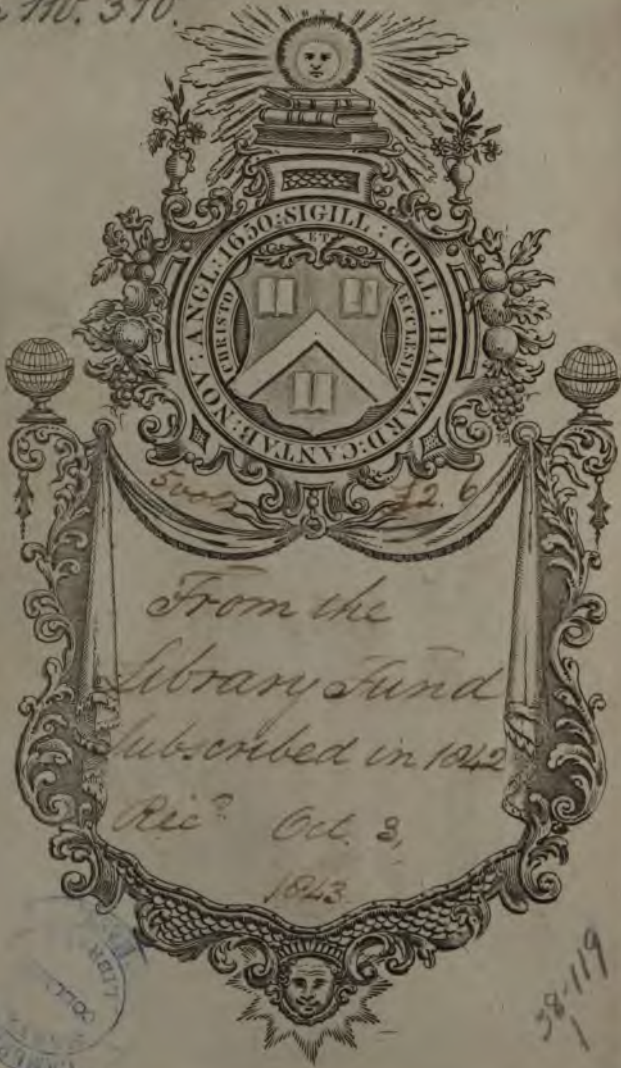 No. 370.
SIGILL : COLL : HARVARD : CANTAB : NOV : ANGL : 1650 :
CHRISTO ET ECCLESIÆ
5 vols £2. 6
From the
Library Fund
Subscribed in 1842
Rec.d Oct. 3,
1843.
38-119
1